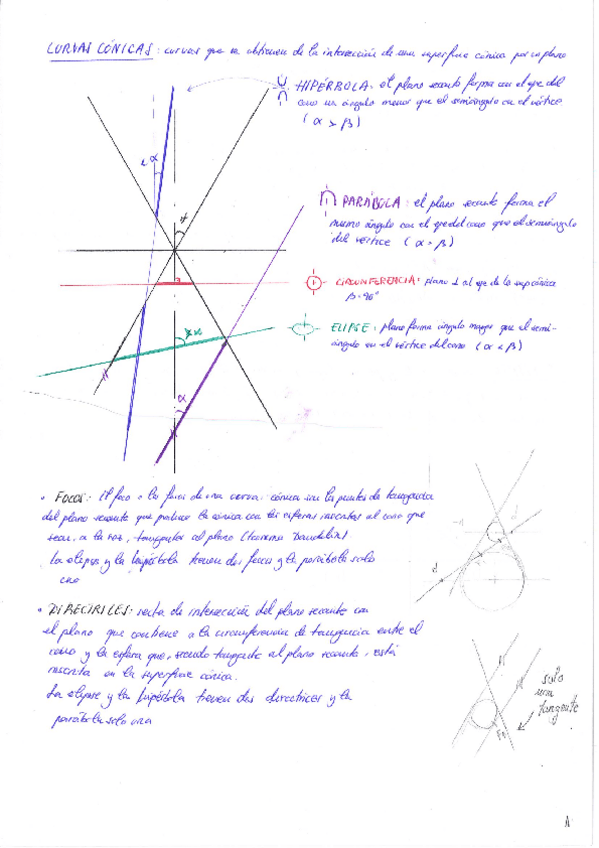 CURVAS CÓNICAS: curvas que se obtienen de la intersección de una superficie cónica por un plano
HIPÉRBOLA: el plano secante forma con el eje del
cono un ángulo menor que el semiángulo en el vértice
(α > β)
PARÁBOLA: el plano secante forma el
mismo ángulo con el eje del cono que el semiángulo
del vértice (α = β)
CIRCUNFERENCIA: plano ⊥ al eje de la sup. cónica
β = 90°
ELIPSE: plano forma ángulo mayor que el semi-
ángulo en el vértice del cono (α < β)
α
α
• FOCOS: El foco o los focos de una curva cónica son los puntos de tangencia
del plano secante que produce la cónica con las esferas inscritas al cono que
sean, a la vez, tangentes al plano (teorema Dandelin).
La elipse y la hipérbola tienen dos focos y la parábola solo
uno
• DIRECTRICES: recta de intersección del plano secante con
el plano que contiene a la circunferencia de tangencia entre el
cono y la esfera que, siendo tangente al plano secante, está
inscrita en la superficie cónica.
La elipse y la hipérbola tienen dos directrices y la
parábola solo una
d
solo
una
tangente